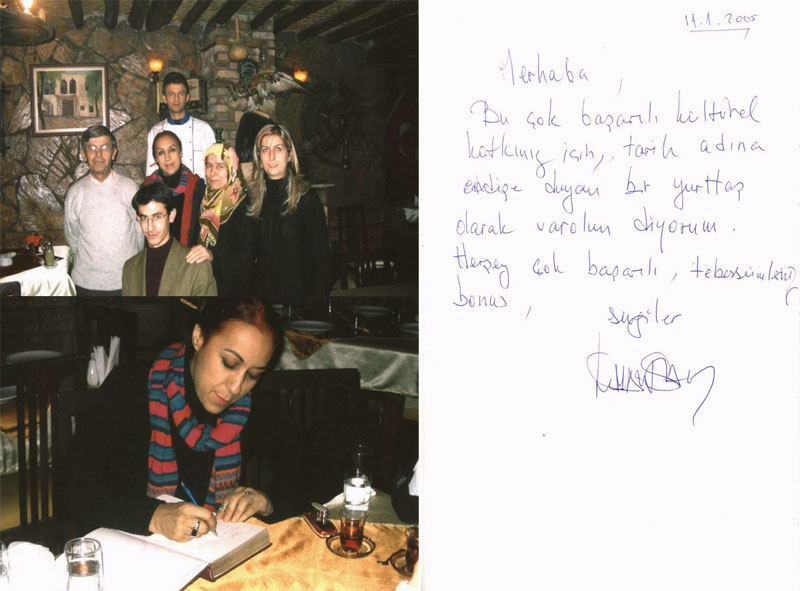 11.1.2005
Merhaba,
Bu çok başarılı kültürel
katkınız için, tarih adına
endişe duyan bir yurttaş
olarak varolun diyorum.
Herşey çok başarılı, tebessümleriniz
bonus,
sevgiler